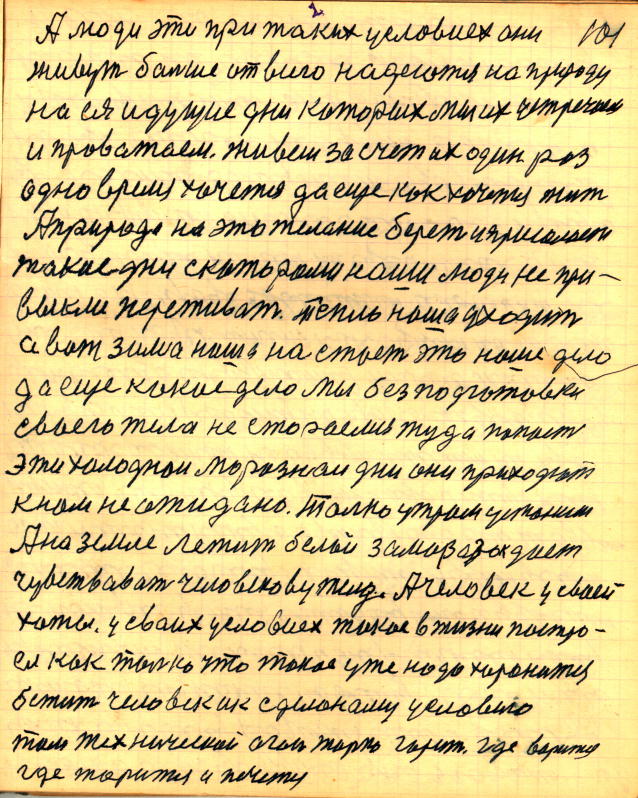 2
101
А люди эти при таких условиех они
живут болше от всего надеются на природу
на ея идущие дни которых мы их устречаем
и проважаем. живем за счет их один раз
одно время хочется да еще как хочется жит
А природа на это желание берет и присылает
такое дни с каторами наши люди не при–
выкли переживат. тепло наша уходит
а вот зима наша настает это наше дело
да еще какое дело мы без подготовки
своего тела не стораемся туда попаст
Эти холоднои морознои дни они приходят
к нам не ожидано. Толко утром устанем
А на земле лежит белой замороз дает
чувствават человекову телу. А человек у своей
хаты. у сваих условиех такое в жизни пострo–
ел как толко что такое уже надо хоронится
бежит человек ик сделоному условию
там технической огон жарко горит. где варится
где жарится и печется